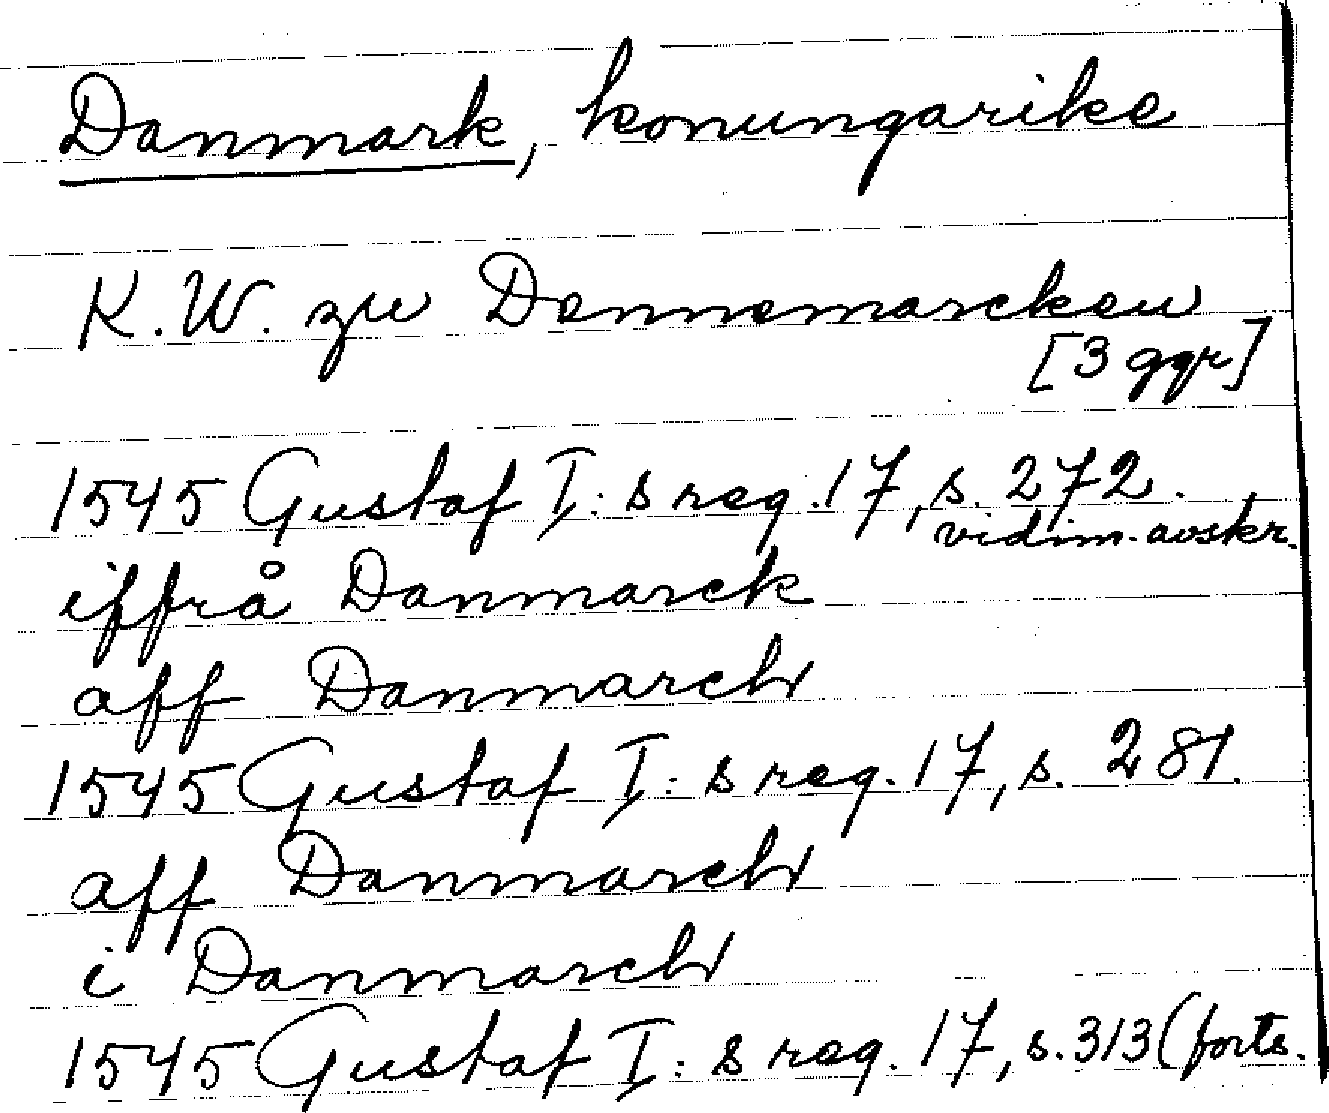 Danmark, konungarike
K.W. zu Dennemarcken
[3 ggr]
1545 Gustaf I:s reg. 17, s. 272.
vidim. avskr.
iffrå Danmarck
aff Danmarch
1545 Gustaf I:s reg. 17, s. 281.
aff Danmarch
i Danmarch
1545 Gustaf I:s reg. 17, s. 313 (forts.